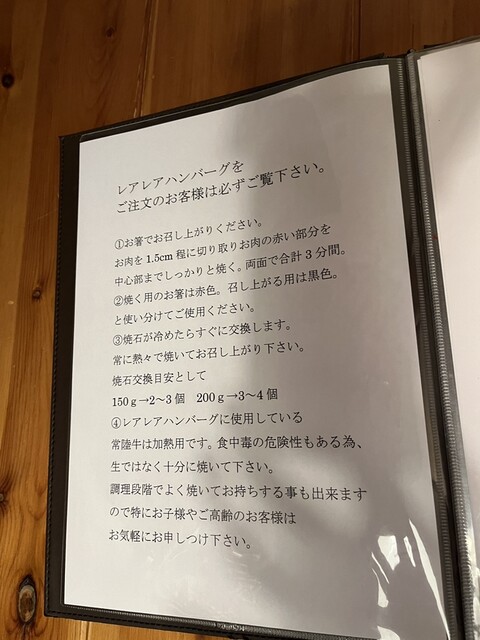 レアレアハンバーグを
ご注文のお客様は必ずご覧下さい。
①お箸でお召し上がりください。
お肉を1.5cm 程に切り取りお肉の赤い部分を
中心部までしっかりと焼く。両面で合計3分間。
②焼く用のお箸は赤色。召し上がる用は黒色。
と使い分けてご使用ください。
③焼石が冷めたらすぐに交換します。
常に熱々で焼いてお召し上がり下さい。
焼石交換目安として
150ｇ→2〜3個　200ｇ→3〜4個
④レアレアハンバーグに使用している
常陸牛は加熱用です。食中毒の危険性もある為、
生ではなく十分に焼いて下さい。
調理段階でよく焼いてお持ちする事も出来ます
ので特にお子様やご高齢のお客様は
お気軽にお申しつけ下さい。